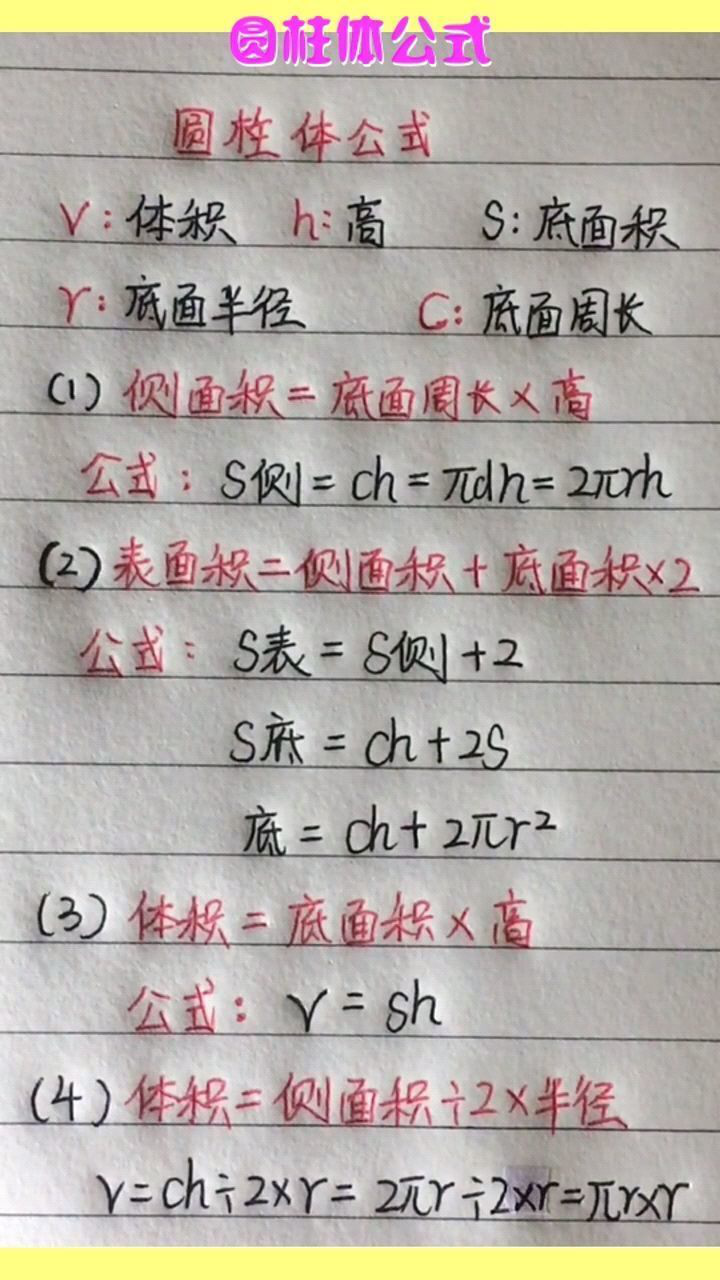 圆柱体公式
圆柱体公式
V：体积 h：高 S：底面积
r：底面半径 C：底面周长
(1) 侧面积=底面周长×高
公式：S侧=ch=πdh=2πrh
(2) 表面积=侧面积+底面积×2
公式：S表=S侧+2
S底=ch+2S
底=ch+2πr²
(3) 体积=底面积×高
公式：V=sh
(4) 体积=侧面积÷2×半径
V=ch÷2×r=2πr÷2×r=πr×r